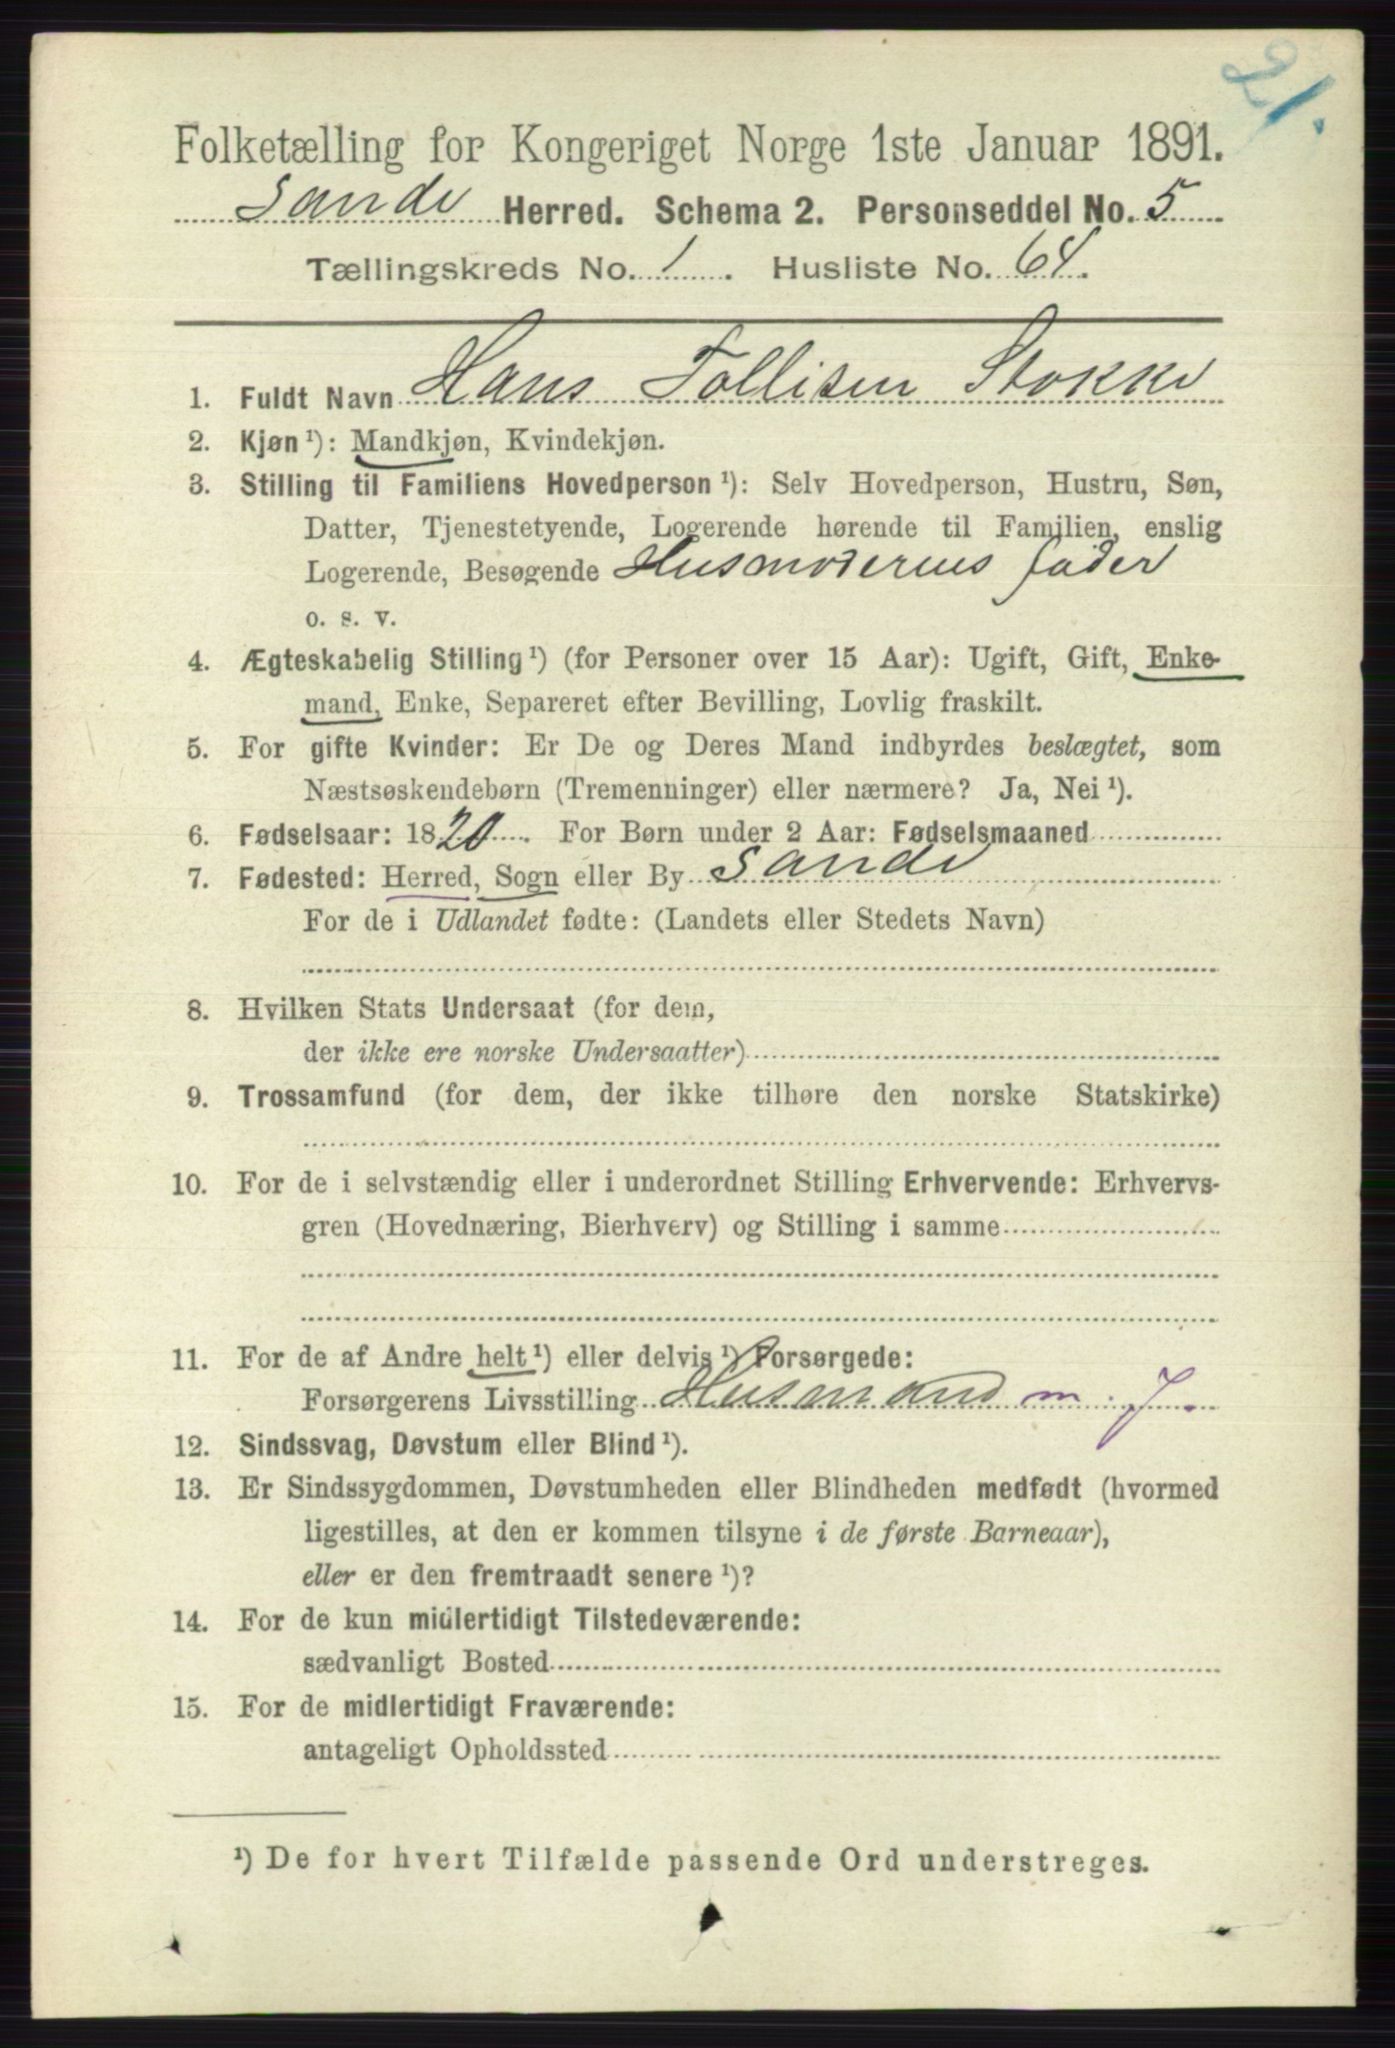 21.
Folketælling for Kongeriget Norge 1ste Januar 1891.
Sande Herred. Schema 2. Personseddel No. 5
Tællingskreds No. 1. Husliste No. 64.
1. Fuldt Navn Hans Follisen Stokke
2. Kjøn ¹): Mandkjøn, Kvindekjøn.
3. Stilling til Familiens Hovedperson ¹): Selv Hovedperson, Hustru, Søn,
Datter, Tjenestetyende, Logerende hørende til Familien, enslig
Logerende, Besøgende Husmoderens fader
o. s. v.
4. Ægteskabelig Stilling ¹) (for Personer over 15 Aar): Ugift, Gift, Enke-
mand, Enke, Separeret efter Bevilling, Lovlig fraskilt.
5. For gifte Kvinder: Er De og Deres Mand indbyrdes beslægtet, som
Næstsøskendebørn (Tremenninger) eller nærmere? Ja, Nei ¹).
6. Fødselsaar: 1820. For Børn under 2 Aar: Fødselsmaaned
7. Fødested: Herred, Sogn eller By Sande
For de i Udlandet fødte: (Landets eller Stedets Navn)
8. Hvilken Stats Undersaat (for dem,
der ikke ere norske Undersaatter)
9. Trossamfund (for dem, der ikke tilhøre den norske Statskirke)
10. For de i selvstændig eller i underordnet Stilling Erhvervende: Erhvervs-
gren (Hovednæring, Bierhverv) og Stilling i samme
11. For de af Andre helt ¹) eller delvis ¹) Forsørgede:
Forsørgerens Livsstilling Husmand m. J.
12. Sindssvag, Døvstum eller Blind ¹).
13. Er Sindssygdommen, Døvstumheden eller Blindheden medfødt (hvormed
ligestilles, at den er kommen tilsyne i de første Barneaar),
eller er den fremtraadt senere ¹)?
14. For de kun midlertidigt Tilstedeværende:
sædvanligt Bosted
15. For de midlertidigt Fraværende:
antageligt Opholdssted
¹) De for hvert Tilfælde passende Ord understreges.